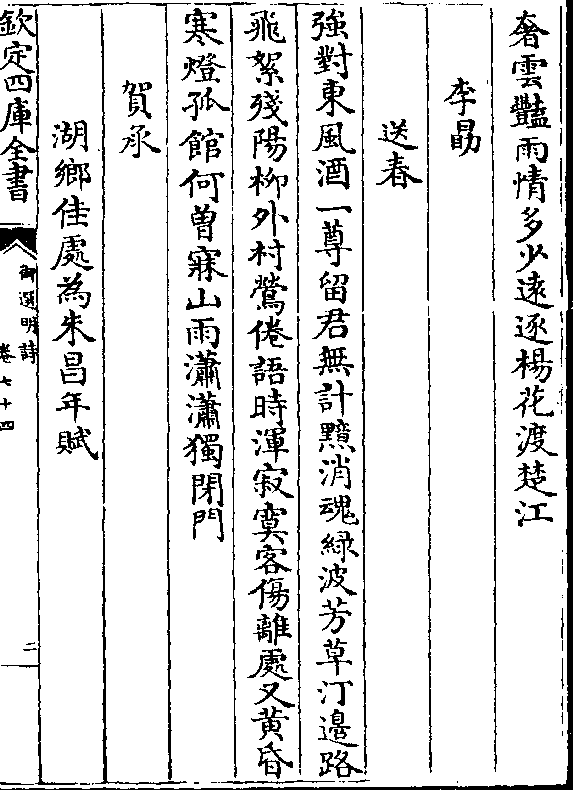 奢雲豔雨情多少遠逐楊花渡楚江
李勗
送春
強對東風酒一尊留君無計黯消魂緑波芳草汀邊路
飛絮殘陽柳外村鶯倦語時渾寂寞客傷離處又黄昏
寒燈孤館何曾寐山雨瀟瀟獨閉門
賀承
湖鄉佳處為朱昌年賦
欽定四庫全書
御選明詩
卷七十四
二